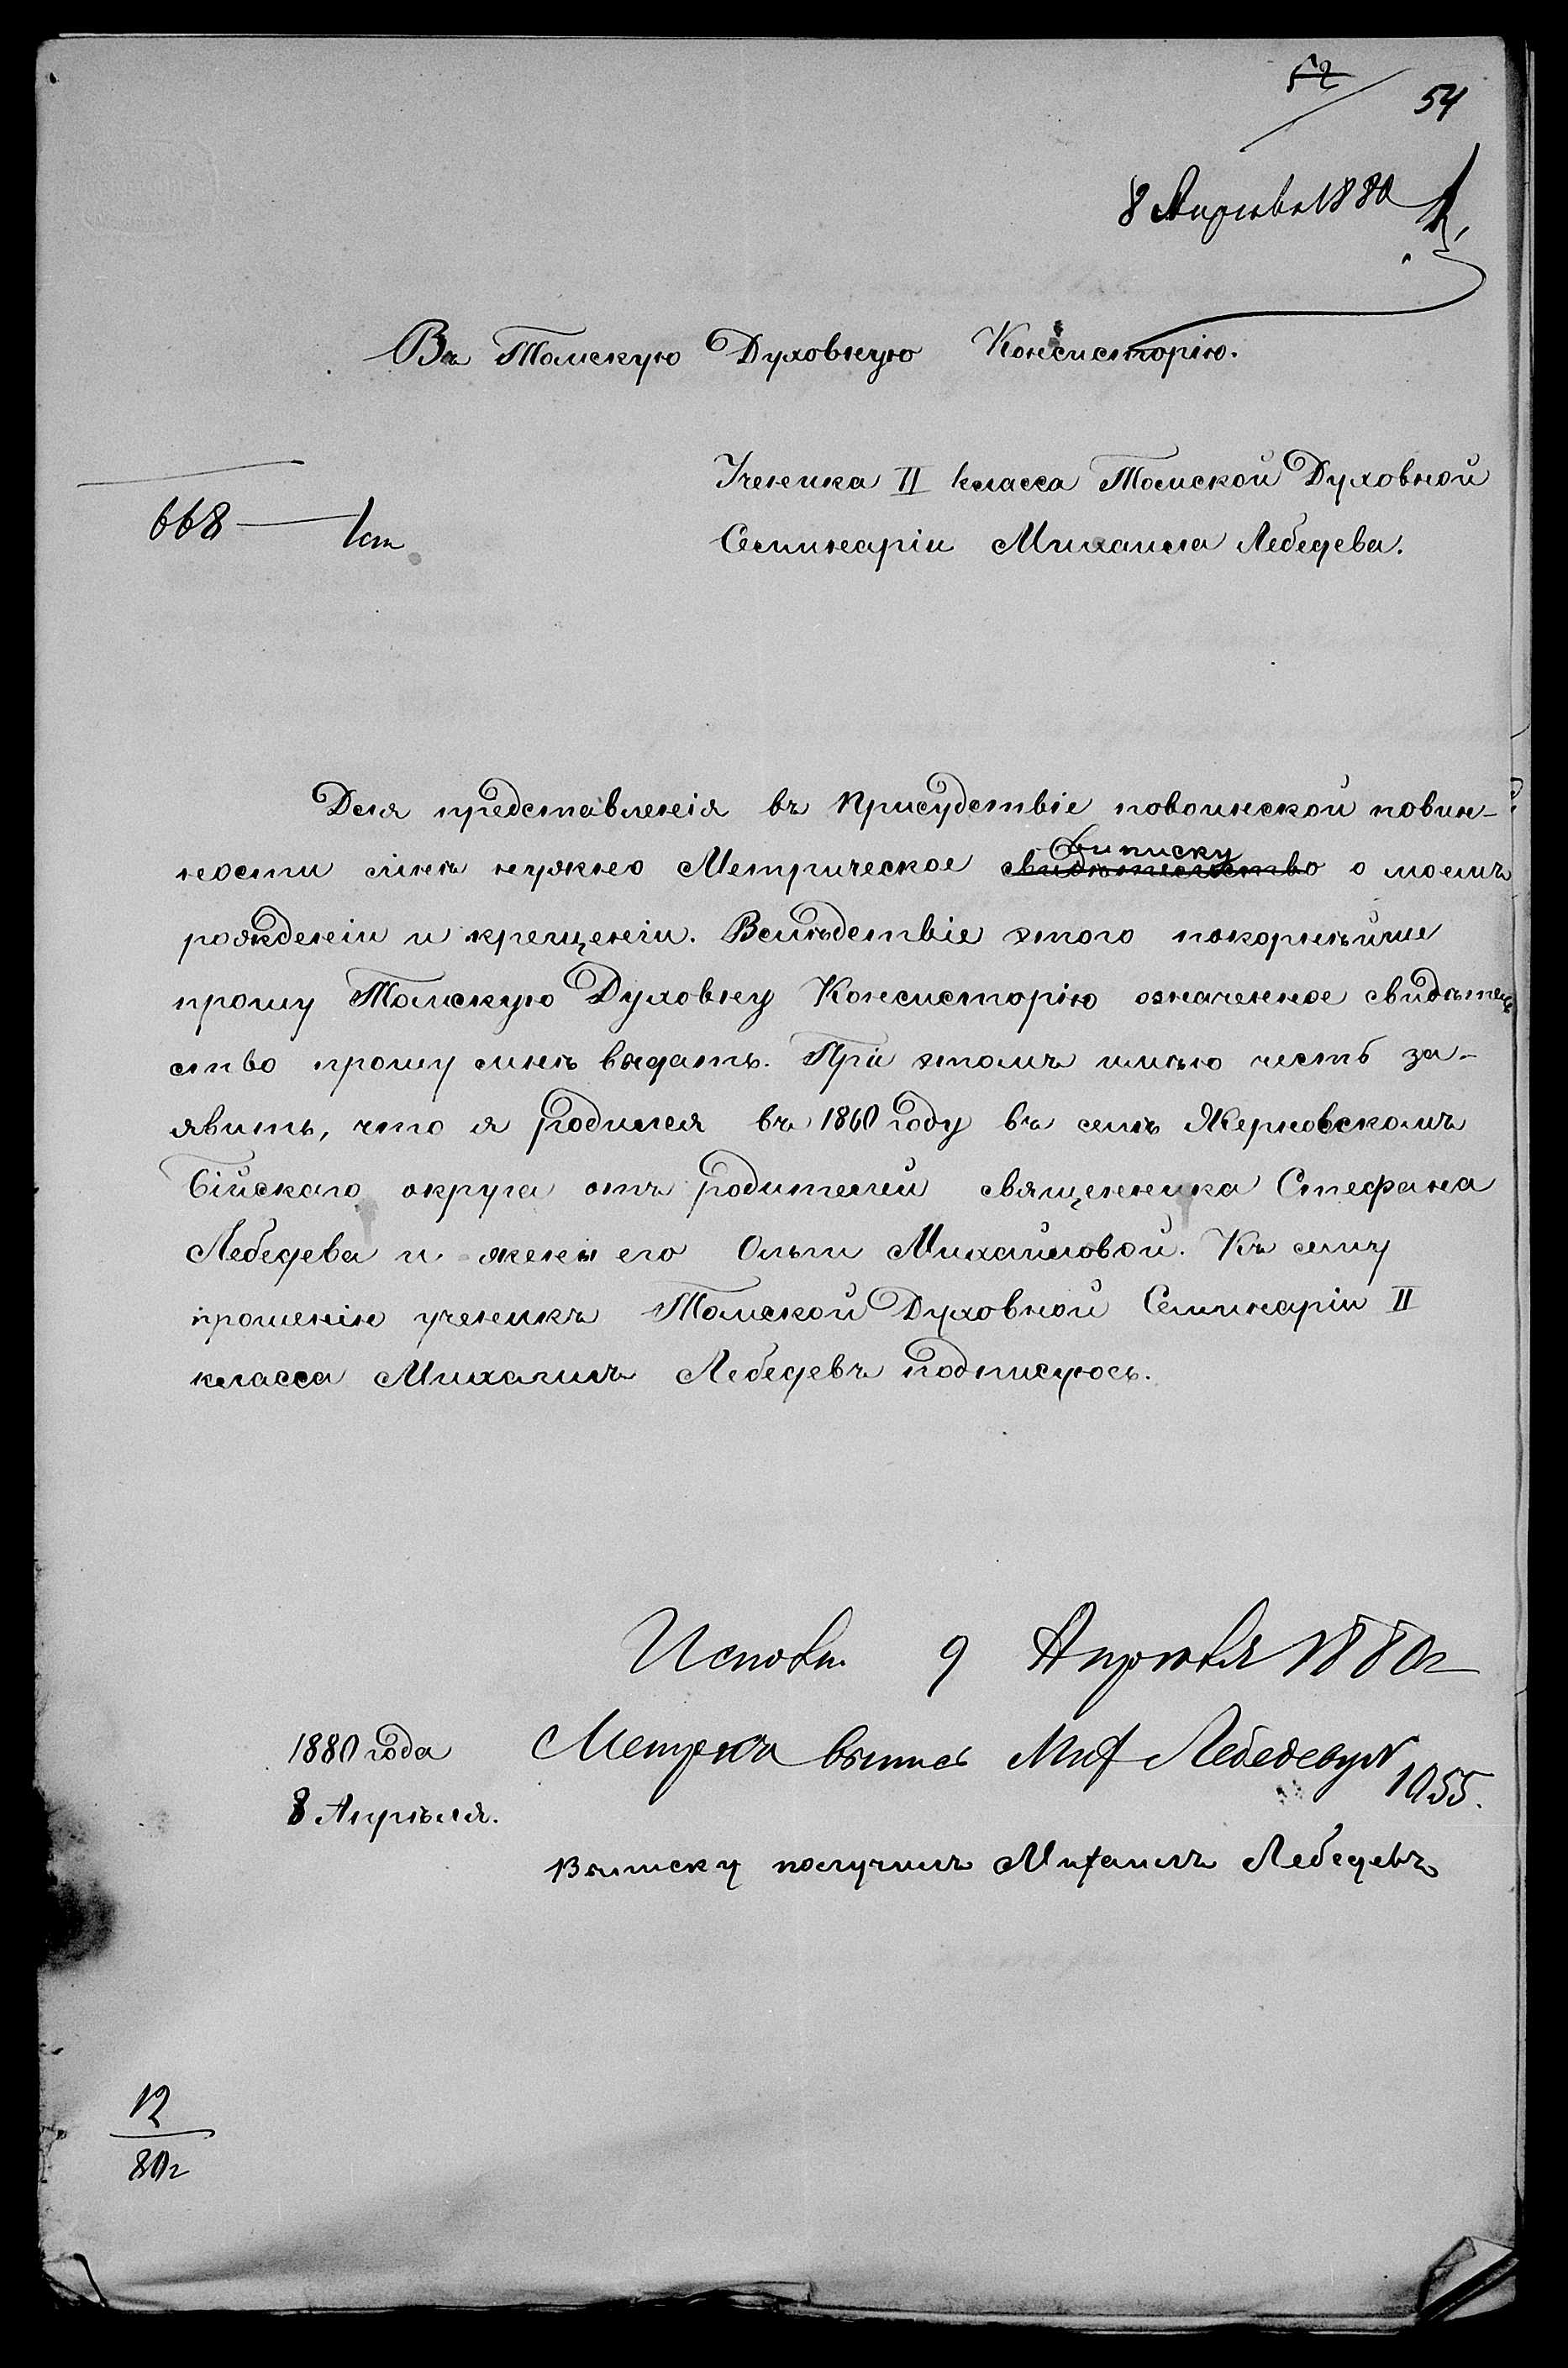 52
54
8 Апрѣля 1880
Въ Томскую Духовную Консисторію.
668 — 1 ст
Ученика II класса Томской Духовной
Семинаріи Михаила Лебедева.
Для представленія въ присудствіе повоинской повин-
ности мнѣ нужно Метрическое свидѣтельство выписку о моемъ
рожденіи и крещеніи. Вслѣдствіе этого покорнѣйше
прошу Томскую Духовну Консисторію означенное свидѣтель
ство прошу мнѣ выдать. При этомъ имѣю честь за-
явить, что я родился въ 1860 году въ селѣ Жерновскомъ
Бійскаго округа отъ родителей священника Стефана
Лебедева и жены его Ольги Михайловой. Къ сему
прошенію ученикъ Томской Духовной Семинаріи II
класса Михаилъ Лебедевъ подписуюсь.
Исполн. 9 Апрѣля 1880 г
1880 года
8 Апрѣля.
Лебедеву № 1055.
Выписку получилъ Михаилъ Лебедевъ
12
80 г